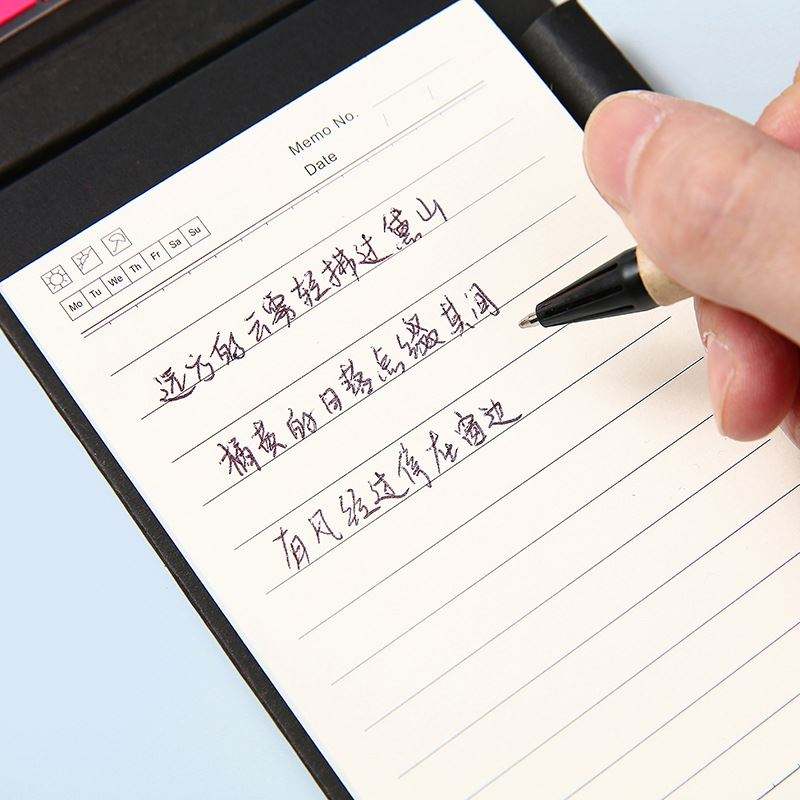 Memo No.
Date
Mo Tu We Th Fr Sa Su
远方的云雾轻拂过黛山
橘黄的日落点缀其间
有风经过停在窗边